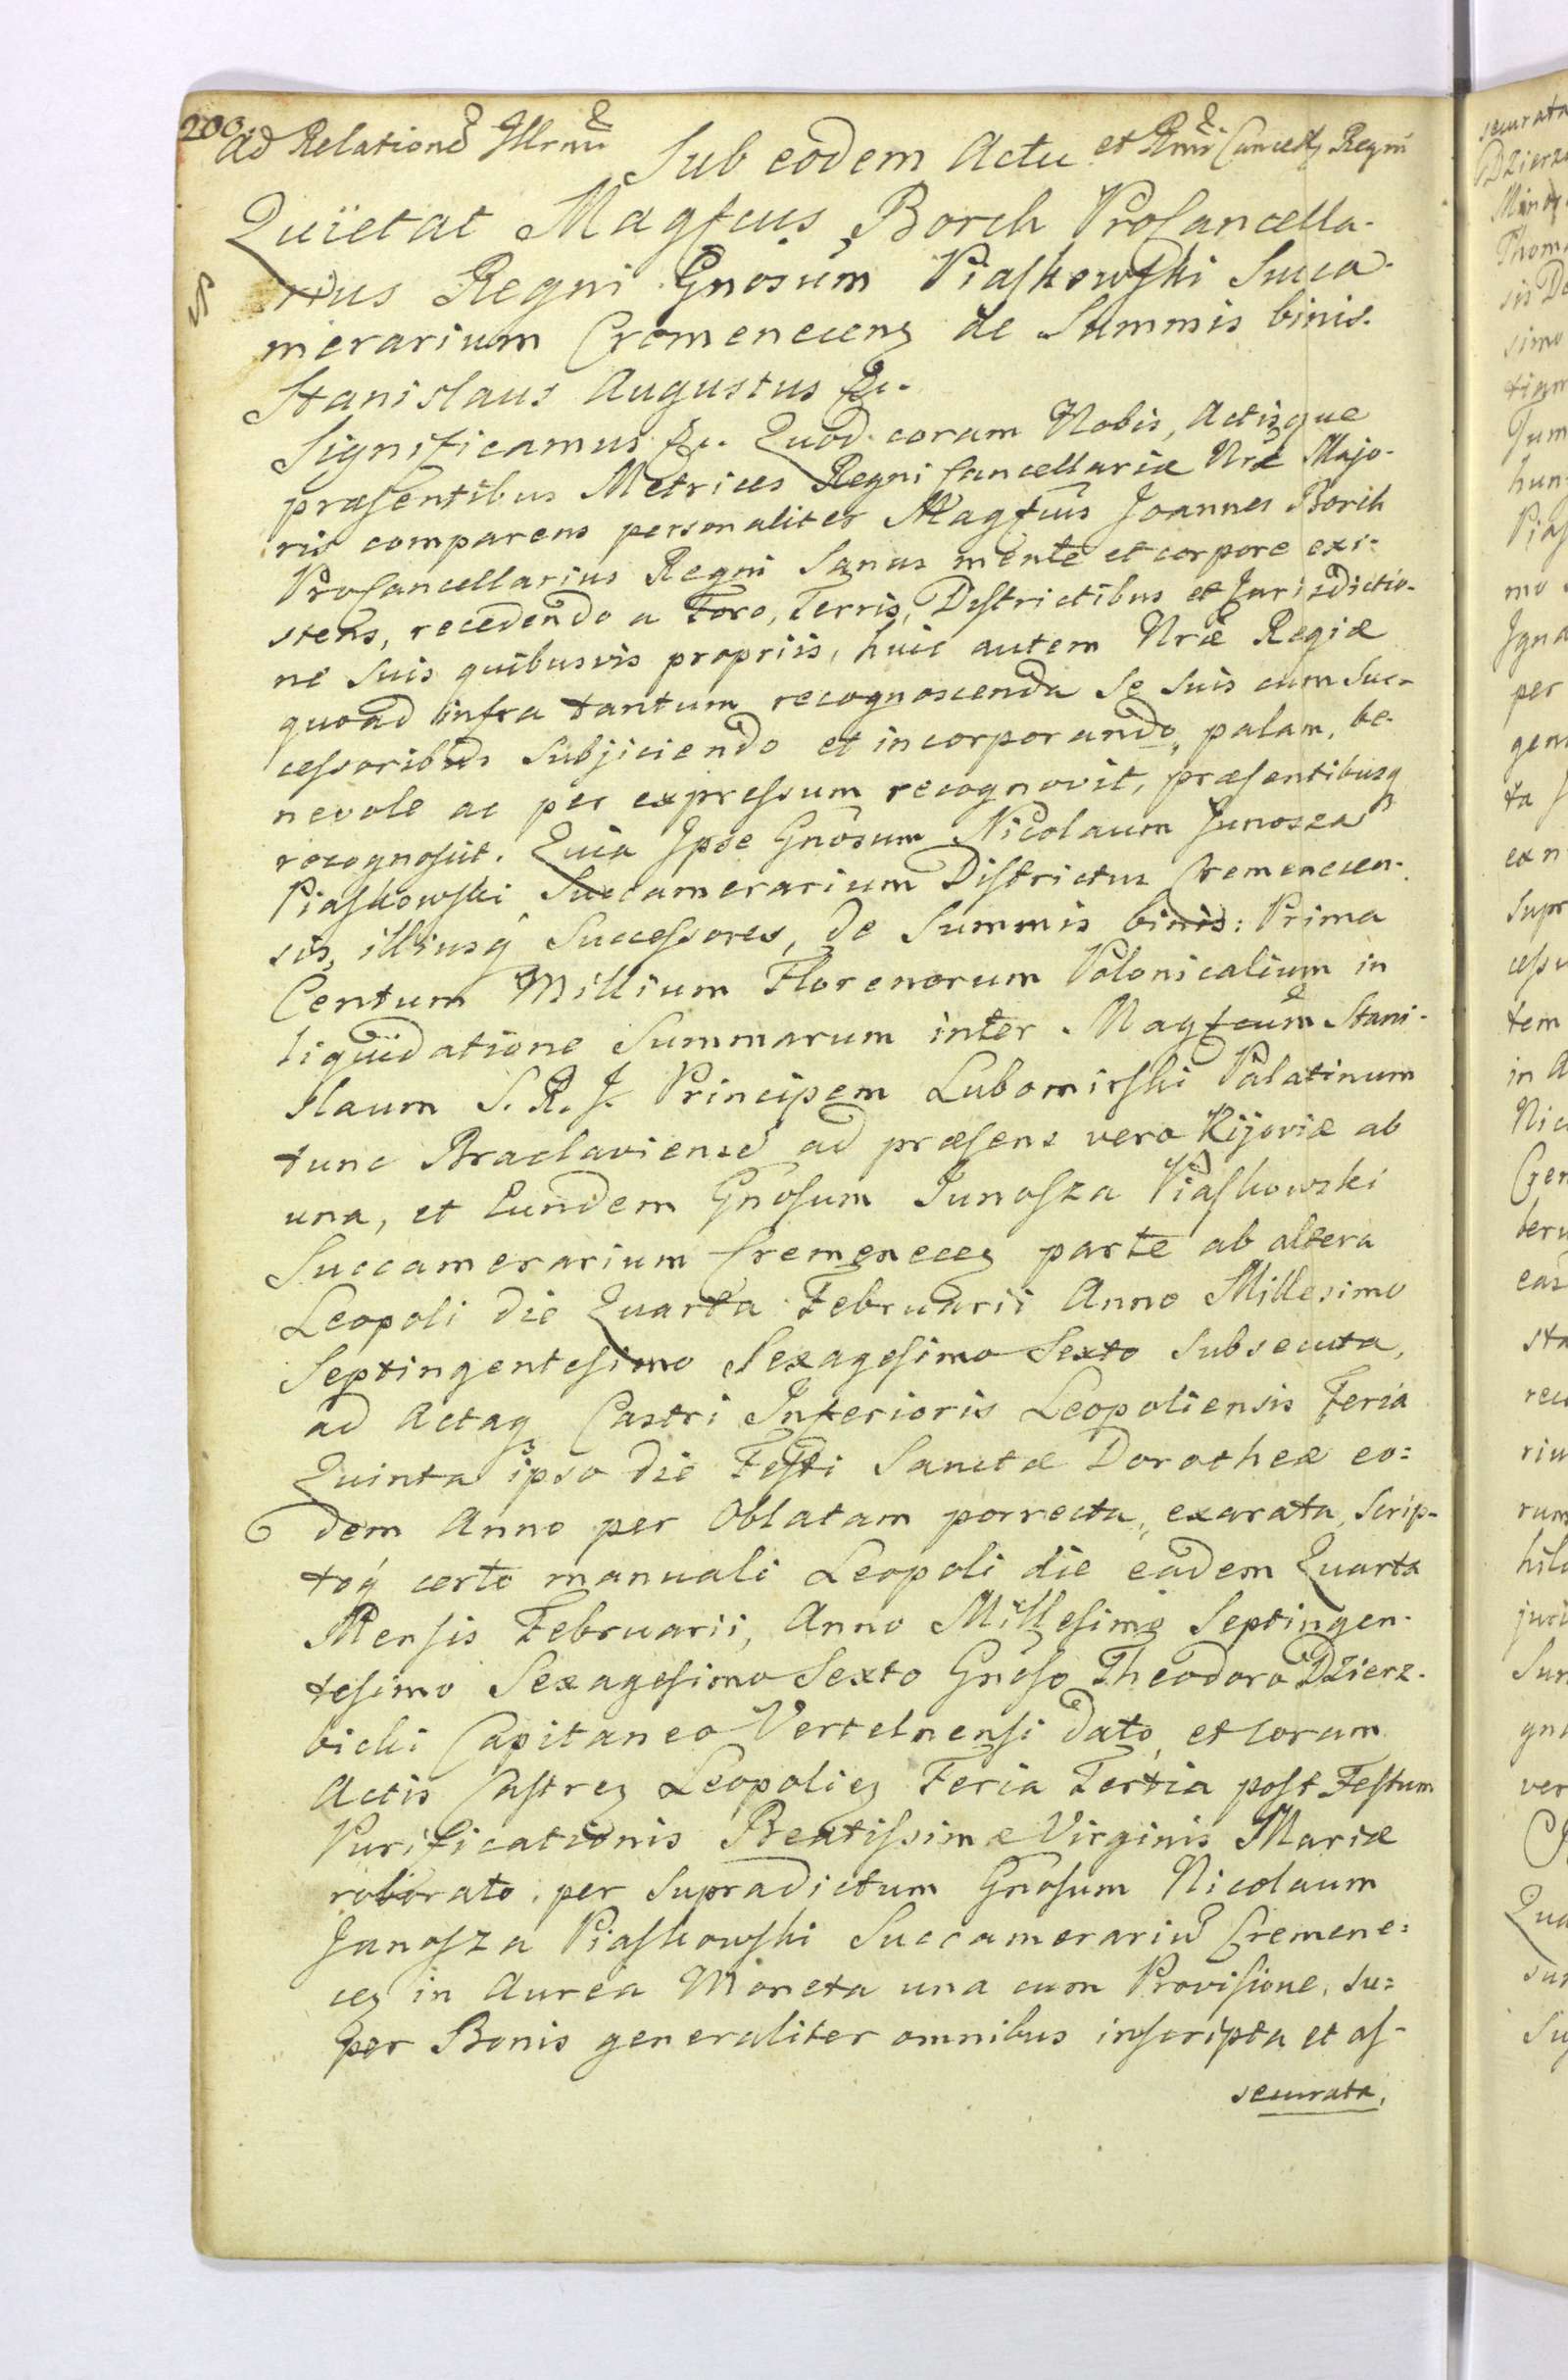 200.
Ad Relatione Illrmi et Rmi Cancell Regni
Sub eodem Actu
Quietat Magfcus Borch ProCancella-
rius Regni Gnosum Piaskowski Succa-
merarium Cremenecens de Summis binis.
Stanislaus Augustus &c.
Significamus &c. Quod coram Nobis, Actisque
præsentibus Metrices Regni Cancellariæ Nræ Majo-
ris comparens personaliter Magfcus Joannes Borch
ProCancellarius Regni Sanus mente et corpore exi-
stens, recedendo a Foro, Terris, Districtibus et Jurisdictio-
ne suis quibusvis propriis, huic autem Nræ Regiæ
quoad infra tantum recognoscenda se suis cum suc-
cessoribus subjiciendo et incorporando, palam, be-
nevole ac per expressum recognovit, præsentibusq
recognoscit. Quia Ipse Gnosum Nicolaum Junosza
Piaskowski Succamerarium Districtus Cremenecen-
sis, illiusq Successores, de Summis binis: Prima
Centum Millium Florenorum Polonicalium in
liquidatione Summarum inter Magfcum Stani-
slaum S. R. J. Principem Lubomirski Palatinum
tunc Braclaviense ad præsens vero Kijoviæ ab
una, et Eundem Gnosum Junosza Piaskowski
Succamerarium Cremenecen parte ab altera
Leopoli die Quarta Februarii Anno Millesimo
Septingentesimo Sexagesimo Sexto subsecuta,
ad Actaq Castri Inferioris Leopoliensis Feria
Quinta ipso die Festi Sanctæ Dorotheæ eo-
dem Anno per Oblatam porrecta, exarata, Scrip-
toq certo manuali Leopoli die eadem Quarta
Mensis Februarii, Anno Millesimo Septingen-
tesimo Sexagesimo Sexto Gnoso Theodoro Dzierz-
bicki Capitaneo Vertelnensi dato, et coram
Actis Castren Leopolien Feria Tertia post Festum
Purificationis Beatissimæ Virginis Mariæ
roborato, per supradictum Gnosum Nicolaum
Junosza Piaskowski Succamerariu Cremene-
cen in Aurea Moneta una cum Provisione, su-
per Bonis generaliter omnibus inscripta et as-
securata,